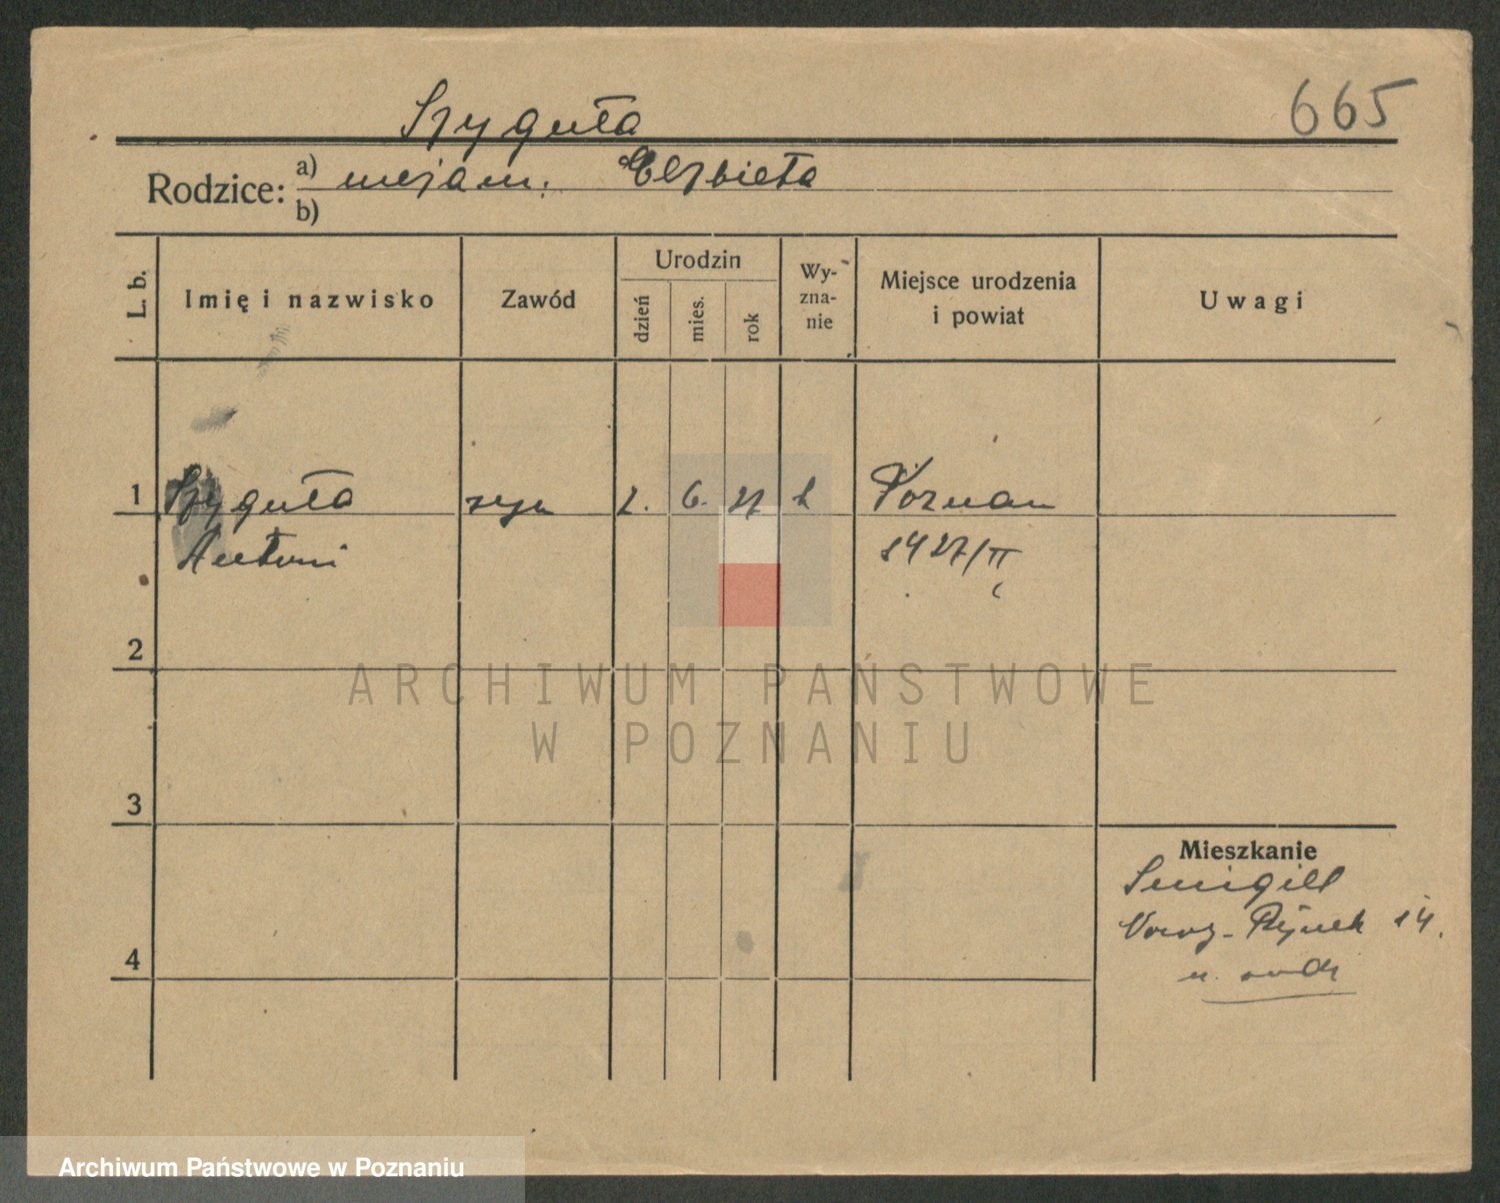 665
Szyguła
Rodzice: a) niezam. Elżbieta
b)
L. b.
Imię i nazwisko
Zawód
Urodzin
dzień
mies.
rok
Wy-
zna-
nie
Miejsce urodzenia
i powiat
Uwagi
1 Szyguła syn 2. 6. 27 k Poznan
Antoni 1427/II
2
ARCHIWUM PAŃSTWOWE
W POZNANIU
3
4
Mieszkanie
Śmigiel
Rynek 14.
Archiwum Państwowe w Poznaniu